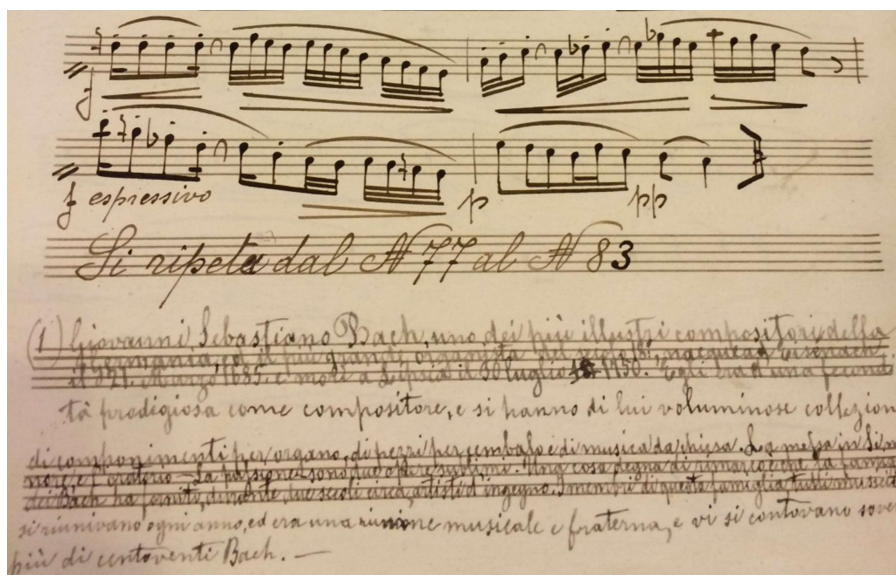 f
f espressivo p pp
Si ripeta dal N 77 al N 83
(1) Giovanni Sebastiano Bach, uno dei più illustri compositori della
Germania, ed il più grande organista del, nacque ad Eisenach,
il 21. Marzo 1685. e morì a Lipsia il 30 luglio 1750. Egli era d'una fecondi
tà prodigiosa come compositore, e si hanno di lui voluminose collezion
di componimenti per organo, di pezzi per cembalo e di musica da chiesa. La messa in Si mi
nore, e l'oratorio La passione sono due opere sublimi. Una cosa degna di rimarco è che la famig
dei Bach ha forniti, durante due secoli circa, artisti d'ingegno. I membri di questa famiglia tutti musicisti
si riunivano ogni anno, ed era una riunione musicale e fraterna, e vi si contavano sove
più di centoventi Bach. —